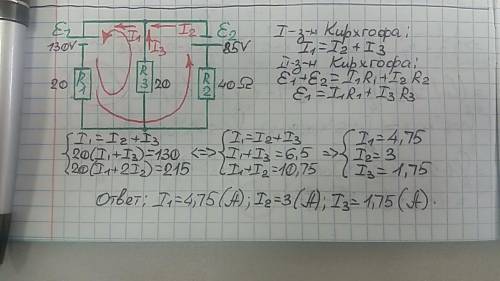 ℰ₁ I₁ I₂ ℰ₂
130V I₃ 85V
20 R₁ R₃ 20 R₂ 40Ω
I-з-н Кирхгофа:
I₁=I₂+I₃
II-з-н Кирхгофа:
ℰ₁+ℰ₂=I₁R₁+I₂R₂
ℰ₁=I₁R₁+I₃R₃
{ I₁=I₂+I₃ { I₁=I₂+I₃ { I₁=4,75
20(I₁+I₃)=130 <=> I₁+I₃=6,5 => I₂=3
20(I₁+2I₂)=215 I₁+I₂=10,75 I₃=1,75
Ответ: I₁=4,75(А); I₂=3(А); I₃=1,75(А).